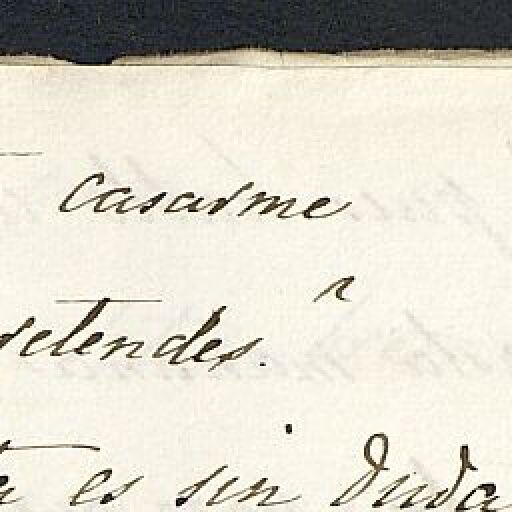 casarme
retendes.
es sin duda